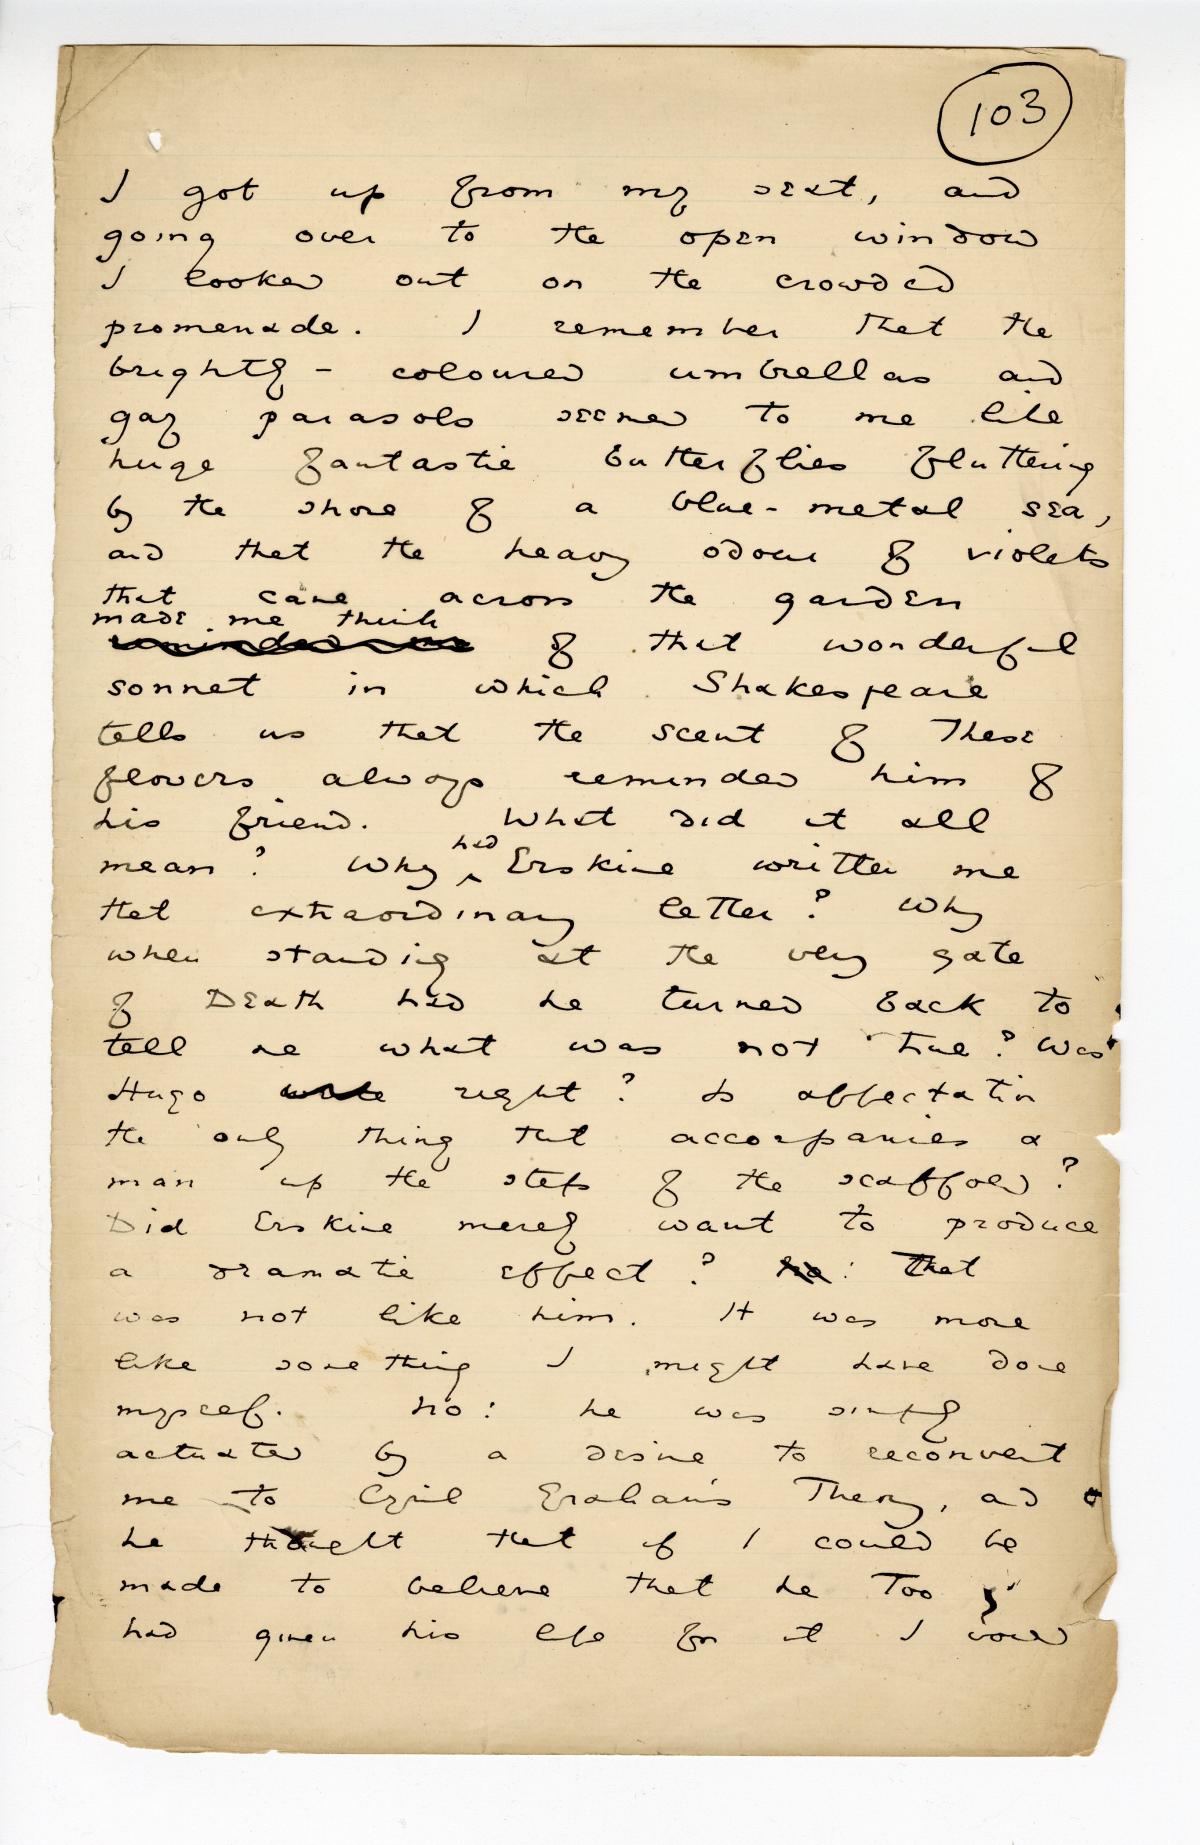 103
I got up from my seat, and
going over to the open window
I looked out on the crowded
promenade. I remember that the
brightly - coloured umbrellas and
gay parasols seemed to me like
huge fantastic butterflies fluttering
by the shore of a blue-metal sea,
and that the heavy odour of violets
that came across the garden
made me think
reminded me of that wonderful
sonnet in which Shakespeare
tells us that the scent of these
flowers always reminded him of
his friend. What did it all
had
mean? Why ^ Erskine written me
that extraordinary letter? Why
when standing at the very gate
of Death had he turned back to
tell me what was not true? Was
Hugo right? Is affectation
the only thing that accompanies a
man up the steps of the scaffold?
Did Erskine merely want to produce
a dramatic effect? No: That
was not like him. It was more
like something I might have done
myself. No: he was simply
actuated by a desire to reconvert
me to Cyril Graham's Theory, and
he thought that if I could be
made to believe that he too
had given his life for it I would